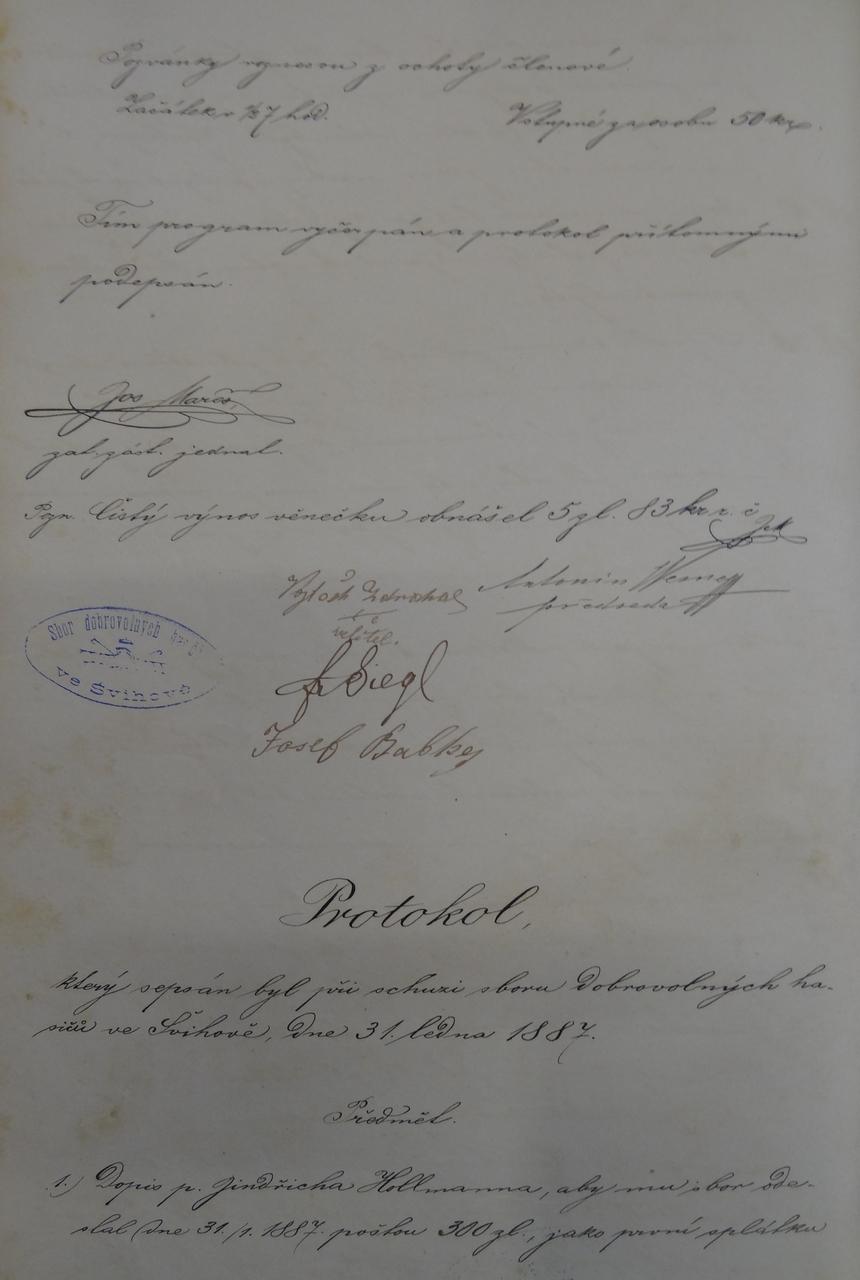 Pozvánky roznesou z ochoty členové.
Začátek v ½7 hod. Vstupné za osobu 50 kr.
Tím program vyčerpán a protokol přítomnými
podepsán.
Jos Mareš,
zat. zást. jednat.
Pozn. Čistý výnos věnečku obnášel 5 zl. 83 kr. r. č
Vojtěch Zdrahal Antonín Werner
velitel. předseda
Sbor dobrovolných
ve Švihově
Fr Siegl
Josef Babka
Protokol,
který sepsán byl při schuzi sboru dobrovolných ha-
sičů ve Švihově, dne 31. ledna 1887.
Předmět.
1.) Dopis p. Jindřicha Hollmanna, aby mu sbor ode-
slal dne 31./1. 1887. poštou 300 zl., jako první splátku